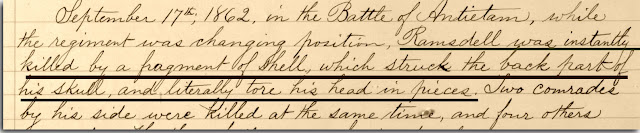 September 17th, 1862, in the Battle of Antietam, while
the regiment was changing position, Ramsdell was instantly
killed by a fragment of shell, which struck the back part of
his skull, and literally tore his head in pieces. Two comrades
by his side were killed at the same time, and four others